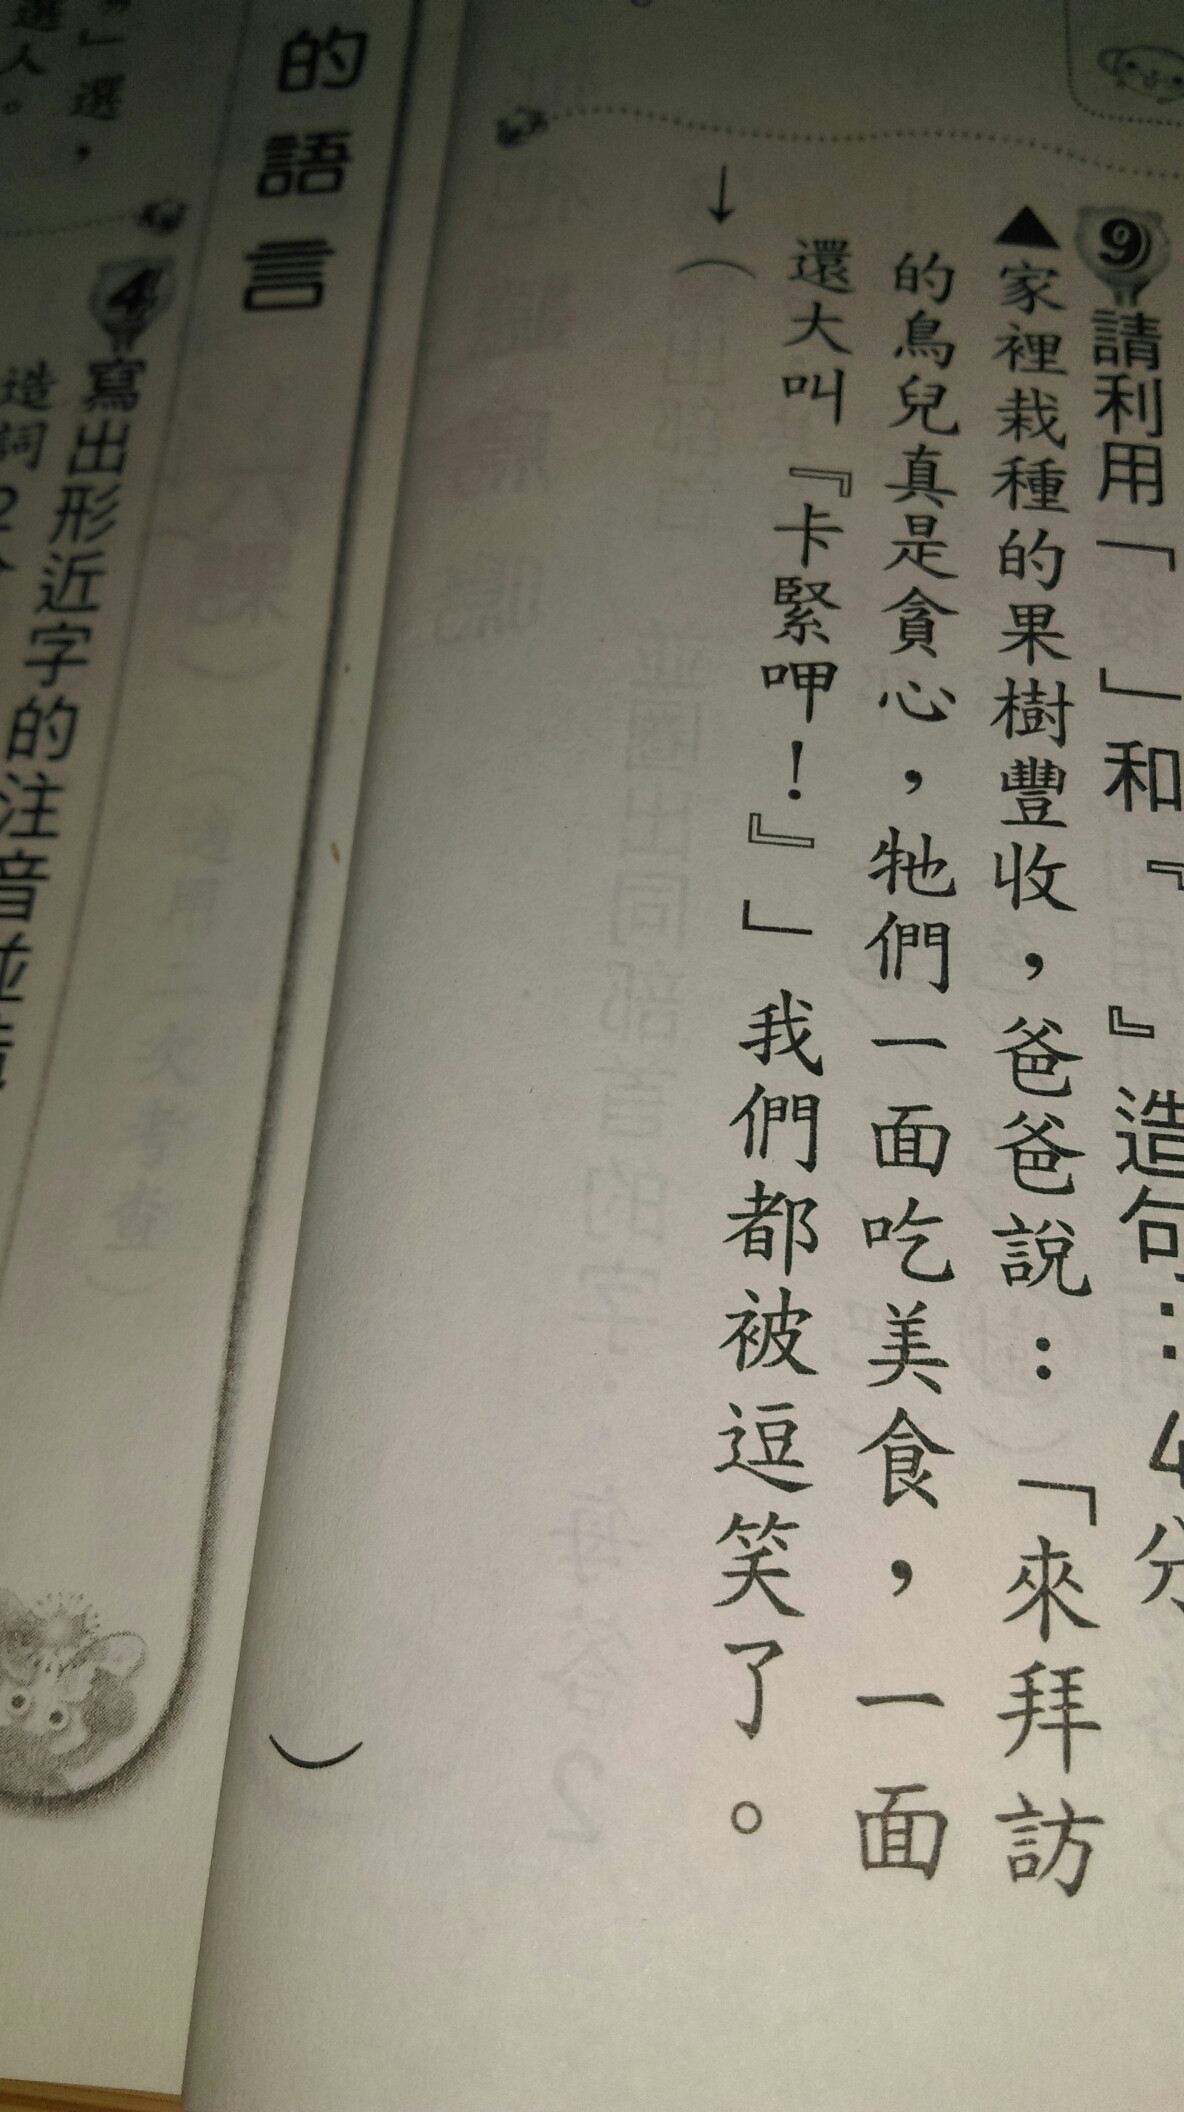 9請利用「　」和『　』造句：4分
▲家裡栽種的果樹豐收，爸爸說：「來拜訪
的鳥兒真是貪心，牠們一面吃美食，一面
還大叫『卡緊呷！』」我們都被逗笑了。
↓（　　）
的語言
4寫出形近字的注音並造
造詞2分
」選，
選人。